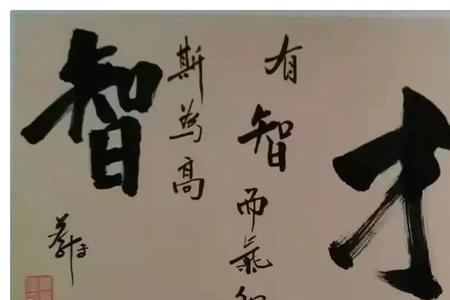 才
有智而氣和
斯為高
智